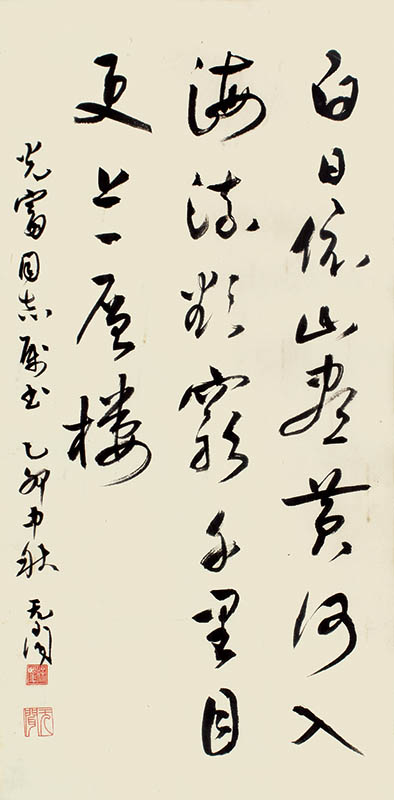 白日依山尽黄河入
海流欲穷千里目
更上一层楼
光富同志属书 乙卯中秋 无闻